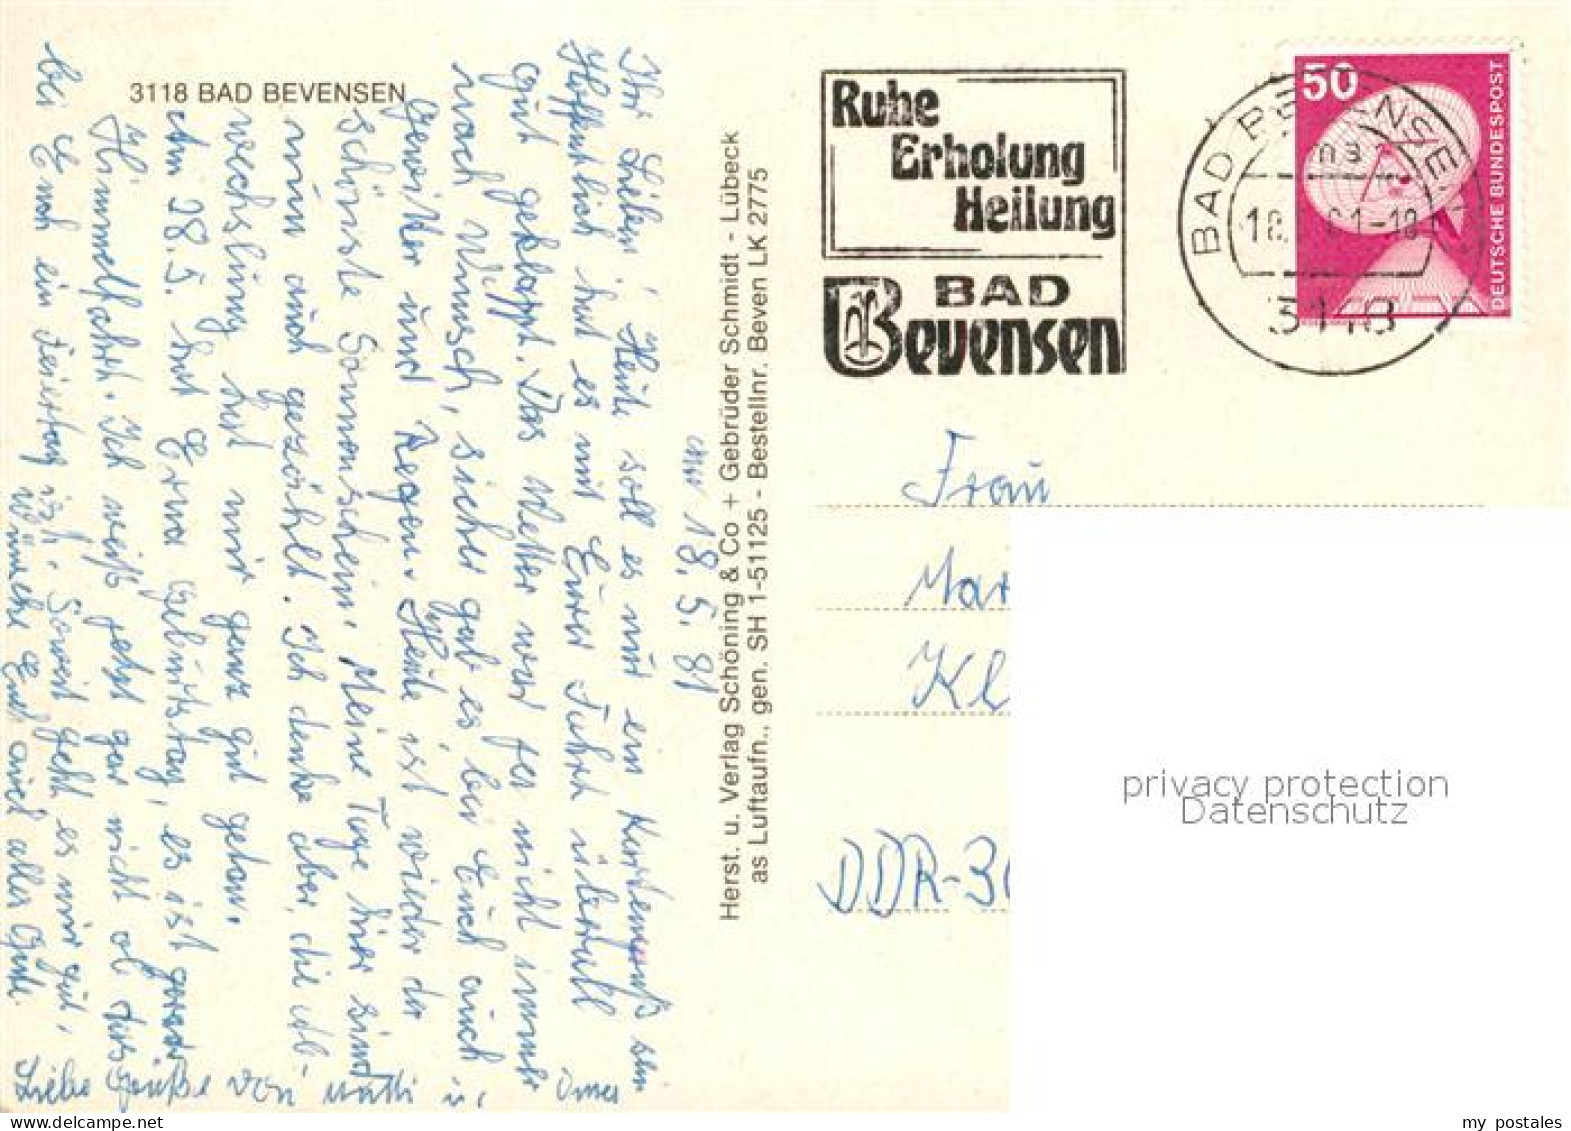 3118 BAD BEVENSEN
am 18.5.81
Ihr Lieben! Heute soll es nur ein Kartengruß sein
Hoffentlich hat es mit Eurer Fahrt überall
gut geklappt. Das Wetter war ja nicht immer
nach Wunsch, sicher gab es bei Euch auch
Gewitter und Regen. Heute ist wieder der
schönste Sonnenschein. Meine Tage hier sind
nun auch gezählt. Ich denke aber, die Ab-
wechslung hat mir ganz gut getan.
Am 28.5. hat Erna Geburtstag, es ist gerade
Himmelfahrt. Ich weiß jetzt gar nicht ob das
bei Euch ein Feiertag ist. Soweit geht es mir gut,
wünsche Euch auch alles Gute.
Liebe Grüße von Mutti u. Oma
Herst. u. Verlag Schöning & Co + Gebrüder Schmidt - Lübeck
as Luftaufn., gen. SH 1-51125 - Bestellnr. Beven LK 2775
Ruhe
Erholung
Heilung
BAD
Bevensen
50
DEUTSCHE BUNDESPOST
BAD BEVENSEN
3118
Frau
Mar
Kl
DDR-30
privacy protection
Datenschutz
my_postales